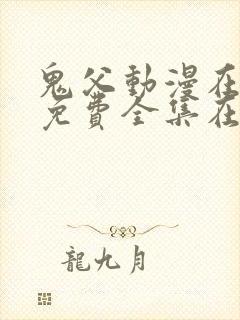 鬼父動漫在
免費全集在
龍九月